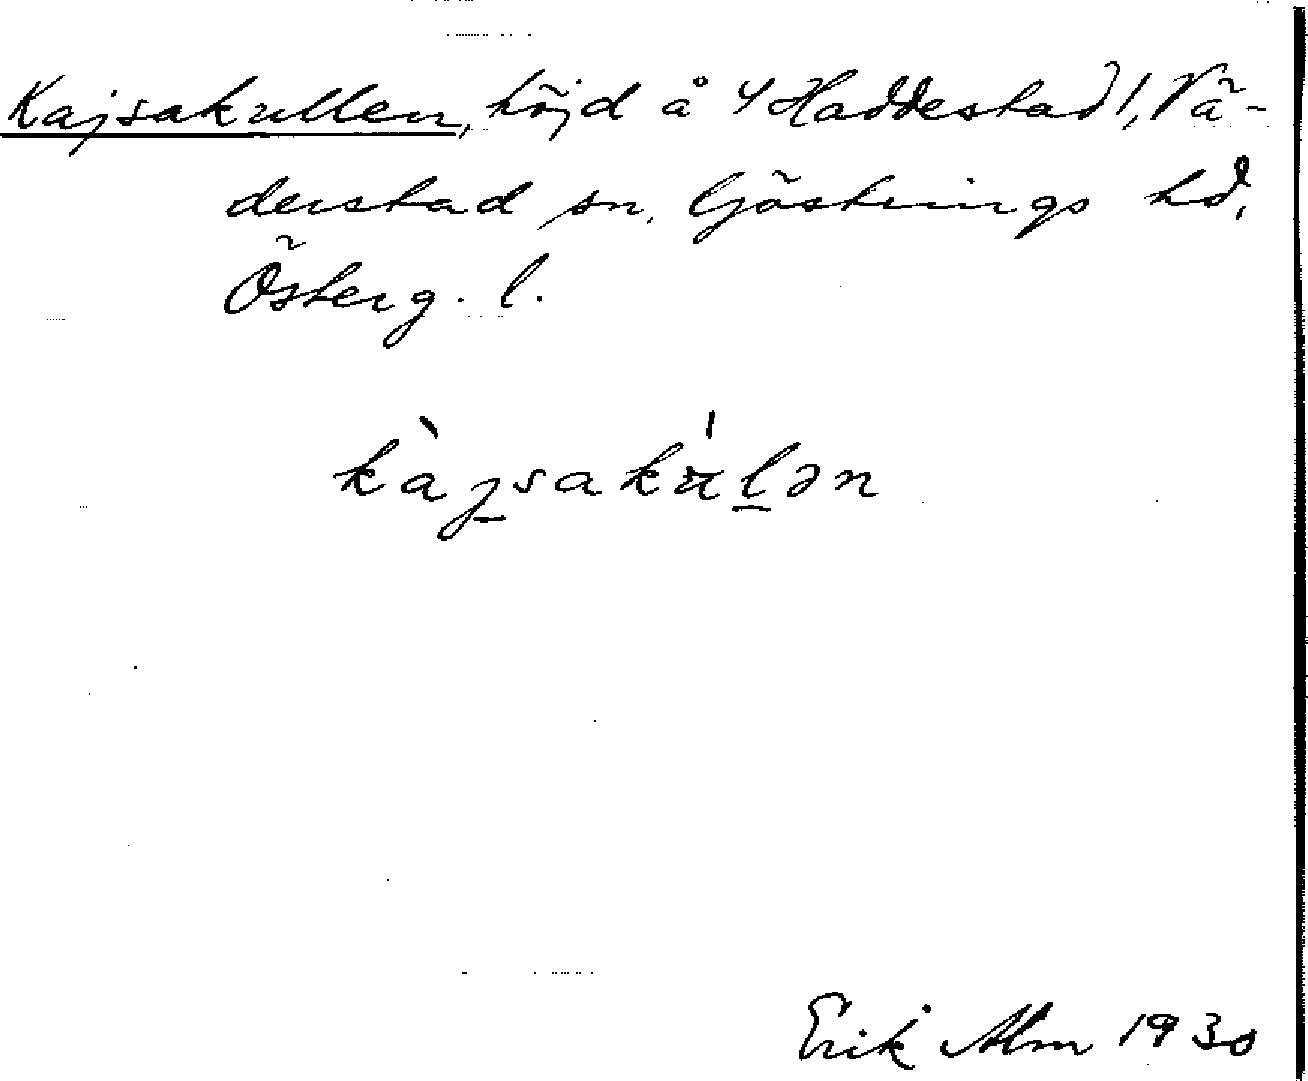 Kajsakullen, höjd å Y Haddestad!, Vä-
derstad sn, Göstrings hd,
Österg. l.
kàjsakúlən
Erik Alm 1930